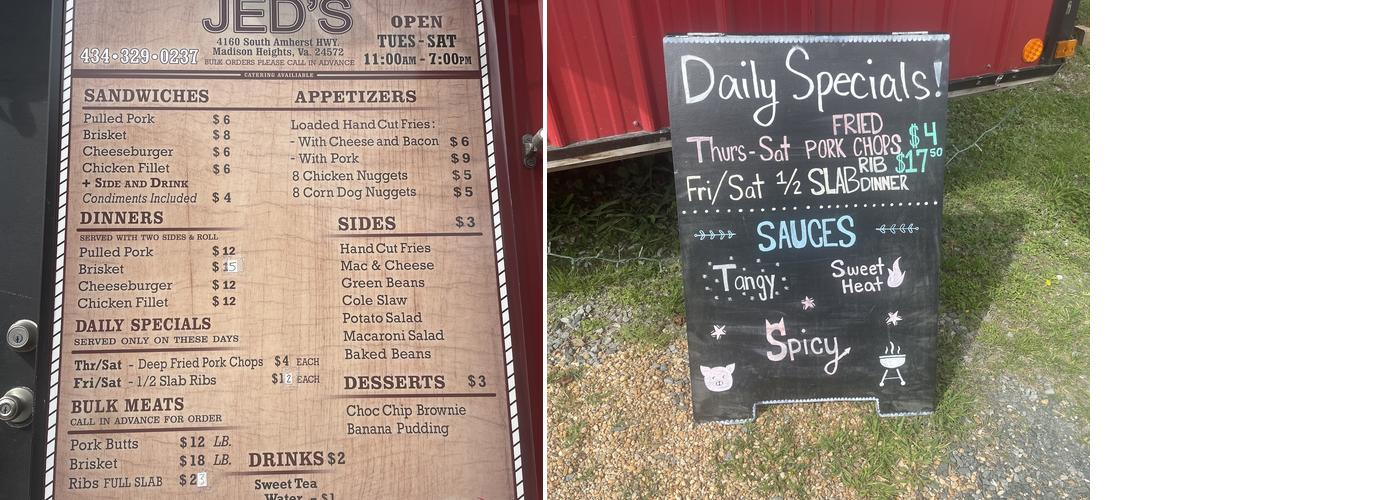 JED'S
434•329•0237
4160 South Amherst HWY.
Madison Heights, Va. 24572
BULK ORDERS PLEASE CALL IN ADVANCE
OPEN
TUES - SAT
11:00AM - 7:00PM
CATERING AVAILIABLE
SANDWICHES
Pulled Pork $ 6
Brisket $ 8
Cheeseburger $ 6
Chicken Fillet $ 6
+ SIDE AND DRINK
Condiments Included $ 4
DINNERS
SERVED WITH TWO SIDES & ROLL
Pulled Pork $ 12
Brisket $ 15
Cheeseburger $ 12
Chicken Fillet $ 12
DAILY SPECIALS
SERVED ONLY ON THESE DAYS
Thr/Sat - Deep Fried Pork Chops $4 EACH
Fri/Sat - 1/2 Slab Ribs $12 EACH
BULK MEATS
CALL IN ADVANCE FOR ORDER
Pork Butts $ 12 LB.
Brisket $ 18 LB.
Ribs FULL SLAB $ 23
APPETIZERS
Loaded Hand Cut Fries:
- With Cheese and Bacon $ 6
- With Pork $ 9
8 Chicken Nuggets $ 5
8 Corn Dog Nuggets $ 5
SIDES $ 3
Hand Cut Fries
Mac & Cheese
Green Beans
Cole Slaw
Potato Salad
Macaroni Salad
Baked Beans
DESSERTS $ 3
Choc Chip Brownie
Banana Pudding
DRINKS $2
Sweet Tea
Water - $1
Daily Specials!
Thurs-Sat FRIED PORK CHOPS $4
Fri/Sat 1/2 SLAB RIB DINNER $17.50
SAUCES
Tangy
Sweet Heat
Spicy